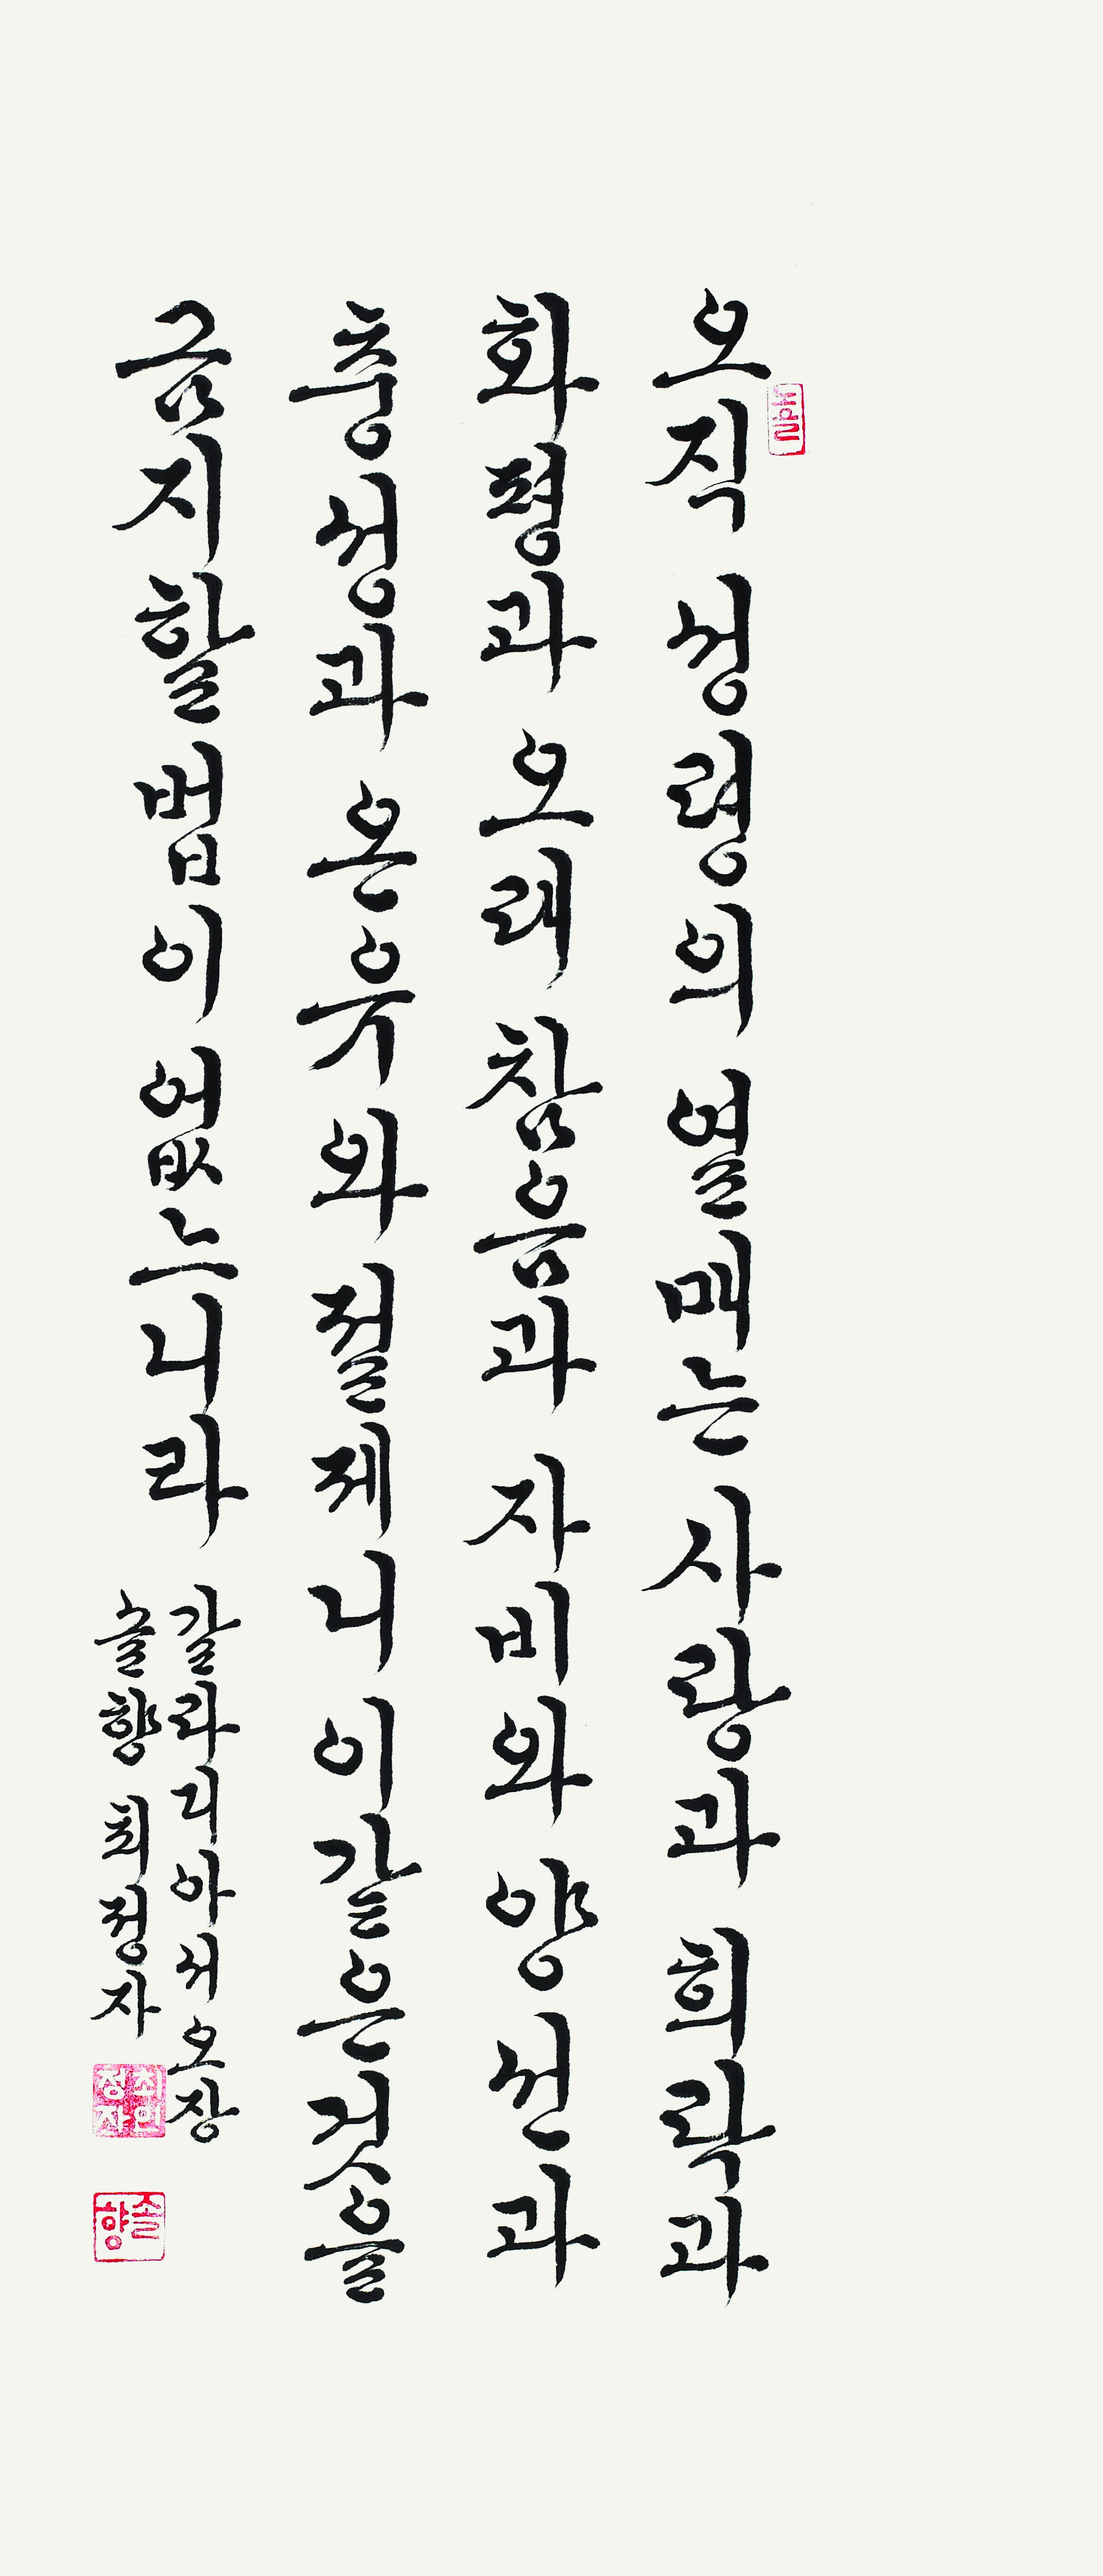 오직 성령의 열매는 사랑과 희락과
화평과 오래 참음과 자비와 양선과
충성과 온유와 절제니 이같은것을
금지할 법이 없느니라
갈라디아서 오장
솔향 최정자
최인
정자
솔향